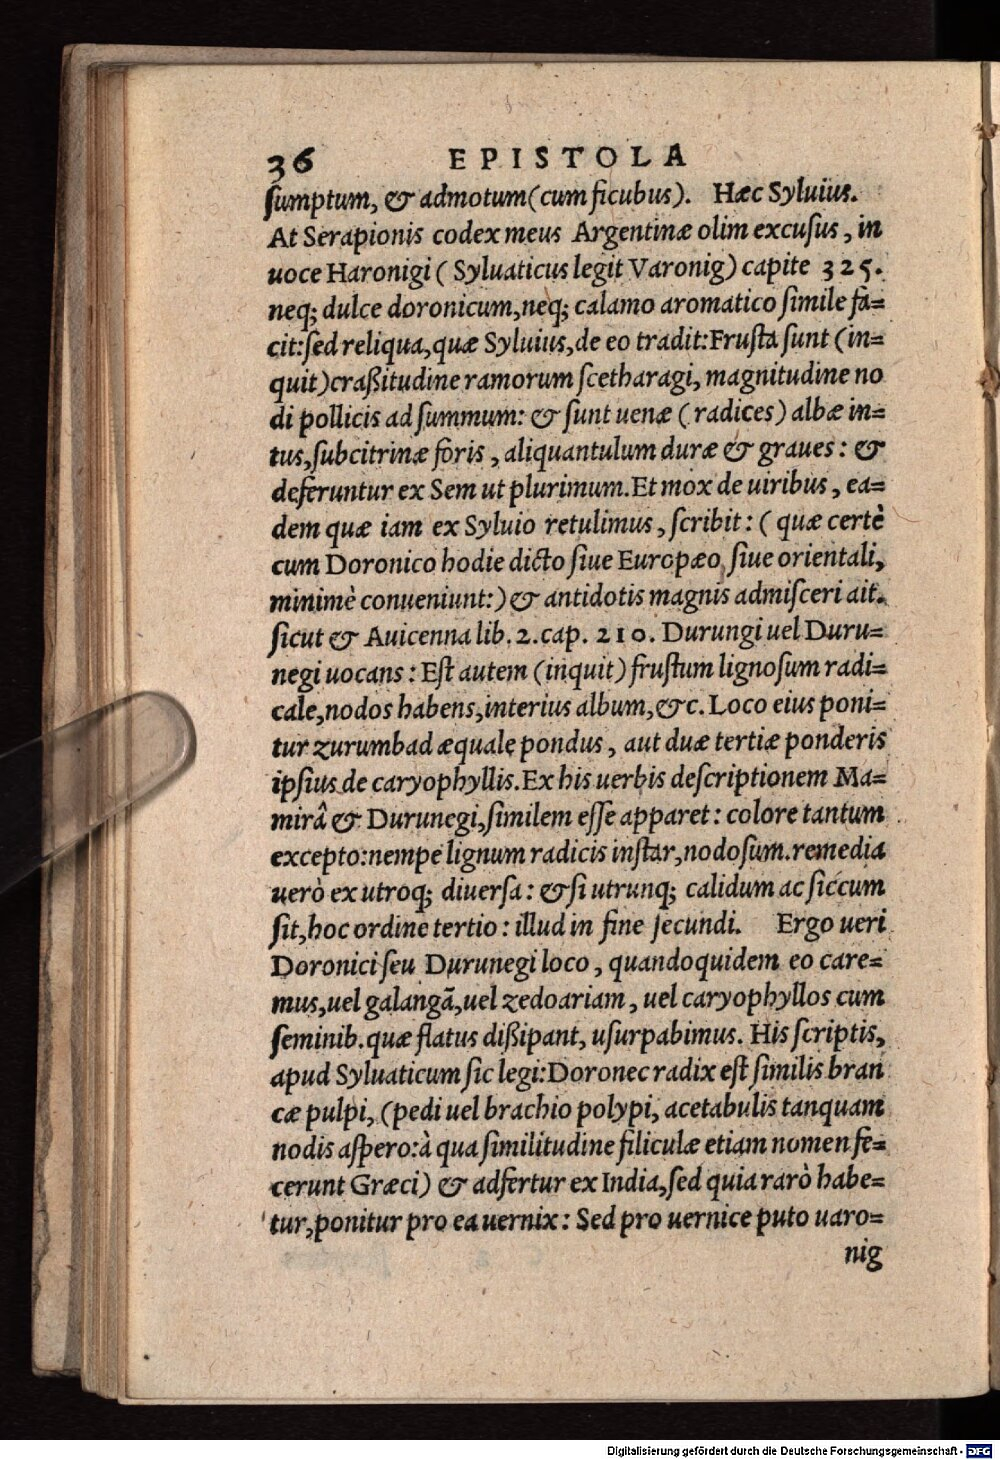 36 EPISTOLA
ſumptum, & admotum (cum ficubus). Hæc Syluius.
At Serapionis codex meus Argentinæ olim excuſus, in
uoce Haronigi ( Syluaticus legit Varonig) capite 325.
neq; dulce doronicum, neq; calamo aromatico ſimile fa=
cit: ſed reliqua, quæ Syluius, de eo tradit: Fruſta ſunt (in=
quit) craßitudine ramorum ſcetharagi, magnitudine no
di pollicis ad ſummum: & ſunt uenæ ( radices) albæ in=
tus, ſubcitrinæ foris, aliquantulum duræ & graues: &
deferuntur ex Sem ut plurimum. Et mox de uiribus, ea=
dem quæ iam ex Syluio retulimus, ſcribit: ( quæ certè
cum Doronico hodie dicto ſiue Europæo, ſiue orientali,
minimè conueniunt:) & antidotis magnis admiſceri ait.
ſicut & Auicenna lib. 2. cap. 210. Durungi uel Duru=
negi uocans: Eſt autem (inquit) fruſtum lignoſum radi=
cale, nodos habens, interius album, &c. Loco eius poni=
tur zurumbad æquale pondus, aut duæ tertiæ ponderis
ipſius de caryophyllis. Ex his uerbis deſcriptionem Ma=
mirâ & Durunegi, ſimilem eſſe apparet: colore tantum
excepto: nempe lignum radicis inſtar, nodoſum. remedia
uerò ex utroq; diuerſa: & ſi utrunq; calidum ac ſiccum
ſit, hoc ordine tertio: illud in fine ſecundi. Ergo ueri
Doronici ſeu Durunegi loco, quandoquidem eo care=
mus, uel galangã, uel zedoariam, uel caryophyllos cum
ſeminib. quæ flatus dißipant, uſurpabimus. His ſcriptis,
apud Syluaticum ſic legi: Doronec radix eſt ſimilis bran
cæ pulpi, (pedi uel brachio polypi, acetabulis tanquam
nodis aſpero: à qua ſimilitudine filiculæ etiam nomen fe=
cerunt Græci) & adfertur ex India, ſed quia rarò habe=
tur, ponitur pro ea uernix: Sed pro uernice puto uaro=
nig
Digitalisierung gefördert durch die Deutsche Forschungsgemeinschaft - DFG